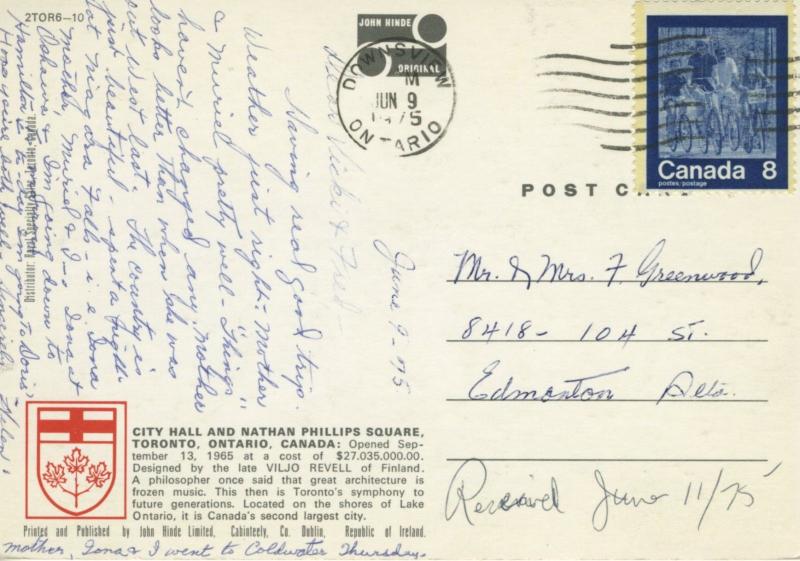 2TOR6-10
JOHN HINDE
ORIGINAL
DOWNSVIEW
M
JUN 9
1975
ONTARIO
Canada 8
postes/postage
POST CARD
June 9-75
Dear Vicki & Fred-
Having real good trip.
Weather just right - Mother
& Muriel pretty well - Things
haven't changed any. Mother
looks better than when she was
out West last. The country is
just beautiful - spent a night
at Niagara Falls - i.e. Iona
mother, Muriel & I - Iona at
Oshawa & I'm going down to
Hamilton to
going to Doris'
Hope you're both well - Sincerely Helen.
mother, Iona & I went to Coldwater Thursday.
Mr. & Mrs. F. Greenwood,
8418 - 104 St.
Edmonton Alta.
Received June 11/75
CITY HALL AND NATHAN PHILLIPS SQUARE,
TORONTO, ONTARIO, CANADA: Opened Sep-
tember 13, 1965 at a cost of $27.035.000.00.
Designed by the late VILJO REVELL of Finland.
A philosopher once said that great architecture is
frozen music. This then is Toronto's symphony to
future generations. Located on the shores of Lake
Ontario, it is Canada's second largest city.
Printed and Published by John Hinde Limited, Cabinteely, Co. Dublin, Republic of Ireland.
Distributor: